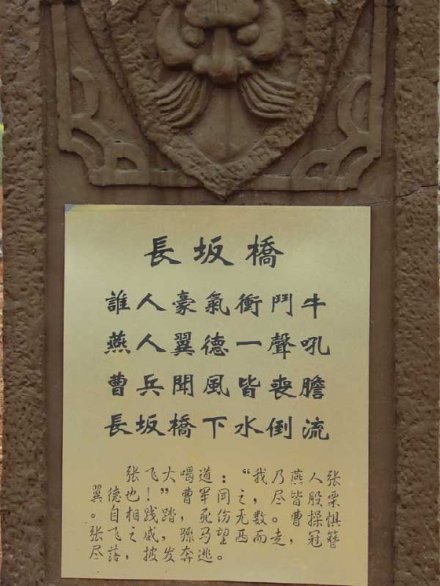 長坂橋
誰人豪氣衝鬥牛
燕人翼德一聲吼
曹兵聞風皆喪膽
長坂橋下水倒流
张飞大喝道："我乃燕人张
翼德也！"曹军闻之，尽皆股栗
。自相践踏，死伤无数。曹操惧
张飞之威，骤马望西而走，冠簪
尽落，披发奔逃。